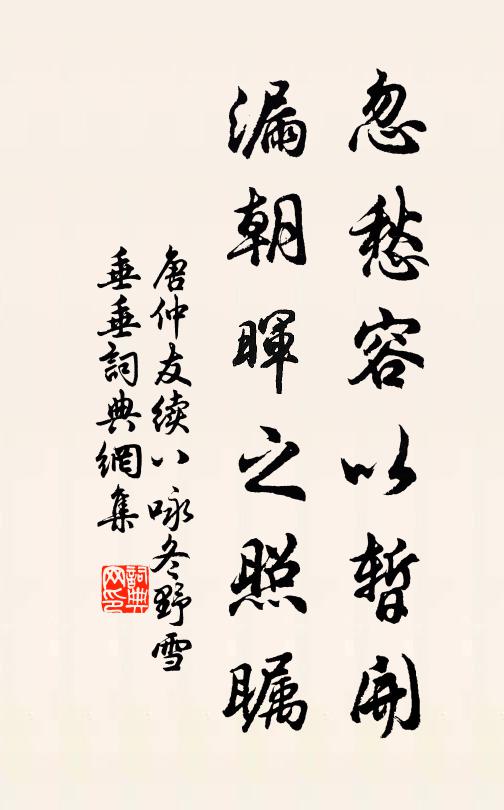 忽愁容以暫開
漏朝暉之照瞩
唐仲友续八咏冬野雪
垂垂詞典網集
詞典
网印